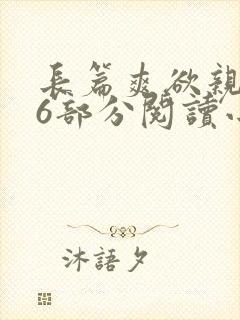 長篇爽欲親
6部分閱讀
沐語夕